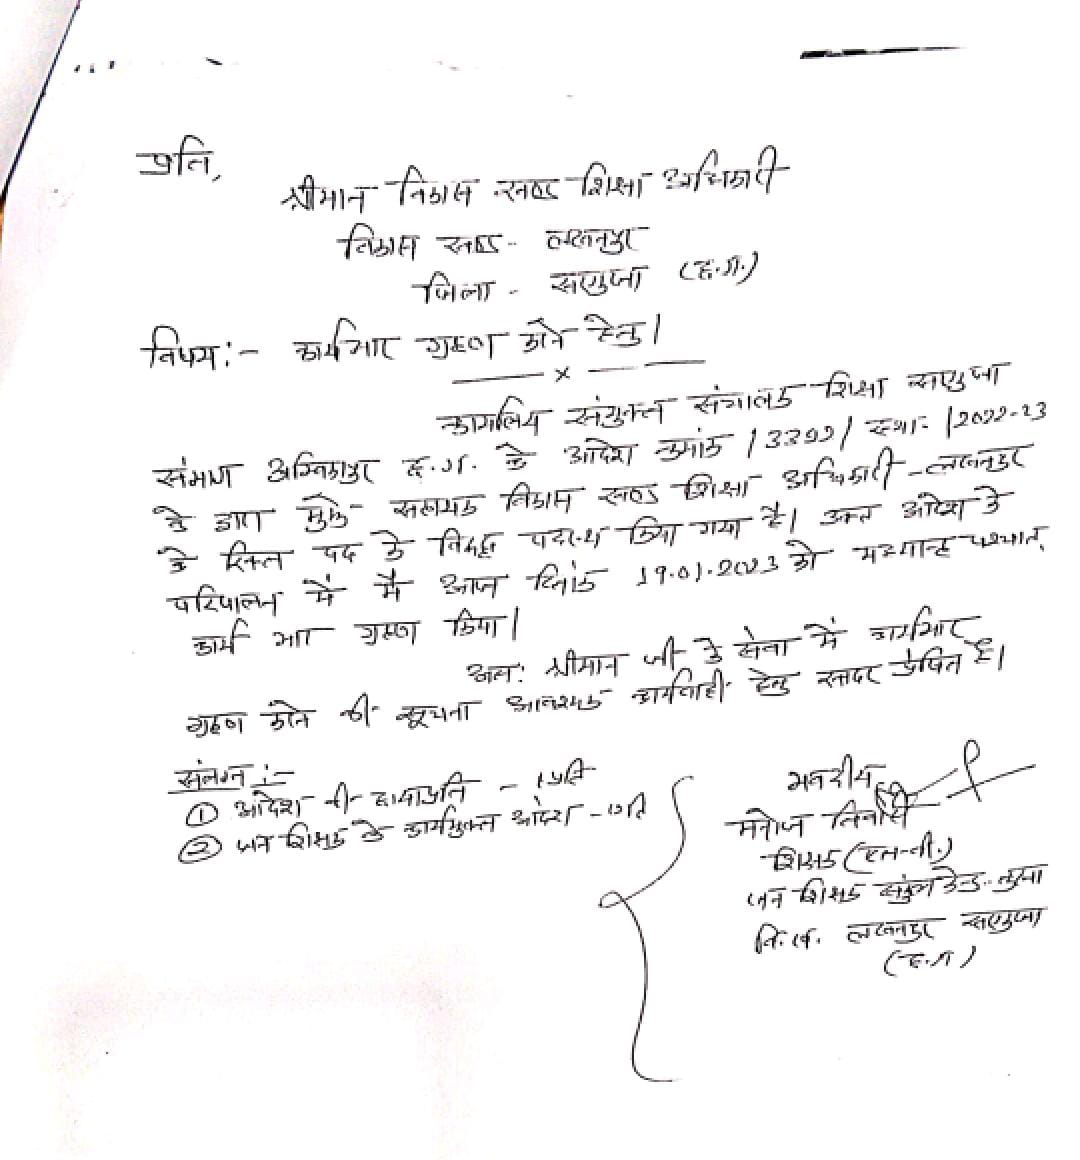 प्रति,
श्रीमान विकास खण्ड शिक्षा अधिकारी
विकास खण्ड - लखनपुर
जिला - सरगुजा (छ.ग.)
विषय :- कार्यभार ग्रहण करने हेतु।
— x — —
कार्यालय संयुक्त संचालक शिक्षा सरगुजा
संभाग अम्बिकापुर छ.ग. के आदेश क्रमांक / 3399 / स्था. / 2022-23
के द्वारा मुझे सहायक विकास खण्ड शिक्षा अधिकारी - लखनपुर
के रिक्त पद के विरुद्ध पदस्थ किया गया है। उक्त आदेश के
परिपालन में मैं आज दिनांक 19.01.2023 को मध्यान्ह पश्चात्
कार्य भार ग्रहण किया।
अतः श्रीमान जी के सेवा में कार्यभार
ग्रहण करने की सूचना आवश्यक कार्यवाही हेतु सादर प्रेषित है।
संलग्न :-
① आदेश की छायाप्रति - 1 प्रति
② जन शिक्षक के कार्यमुक्त आदेश - प्रति
भवदीय
मनोज तिवारी
शिक्षक (एल.बी.)
जन शिक्षक संकुल केन्द्र
वि.ख. लखनपुर सरगुजा
(छ.ग)